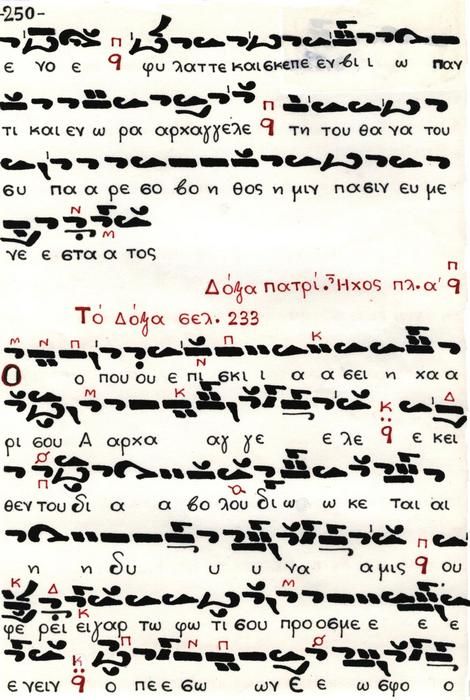 -250-
ε νο ε π q φυ λαττε και σκεπε εν βι ι ω παν
τι και εν ω ρα αρχαγγελε q τη του θα να του
συ πα α ρε σο βο η θος η μιν πασιν ευ με
νε ε στα α τος
Δόξα πατρί. Ἦχος πλ. α' π q
Τό Δόξα σελ. 233
Ο ο που ου ε πι σκι ι α α σει η χα α
ρι σου Α αρχα αγ γε ε λε q ε κει
θεν του δι α α βο λου δι ω ω κε ται αι
η η δυ υ υ να α μις q ου
φε ρει ει γαρ τω φω τι σου προ οσμε ε ε ε
ε νειν q ο πε ε σω ων ε ε ω σφο ο